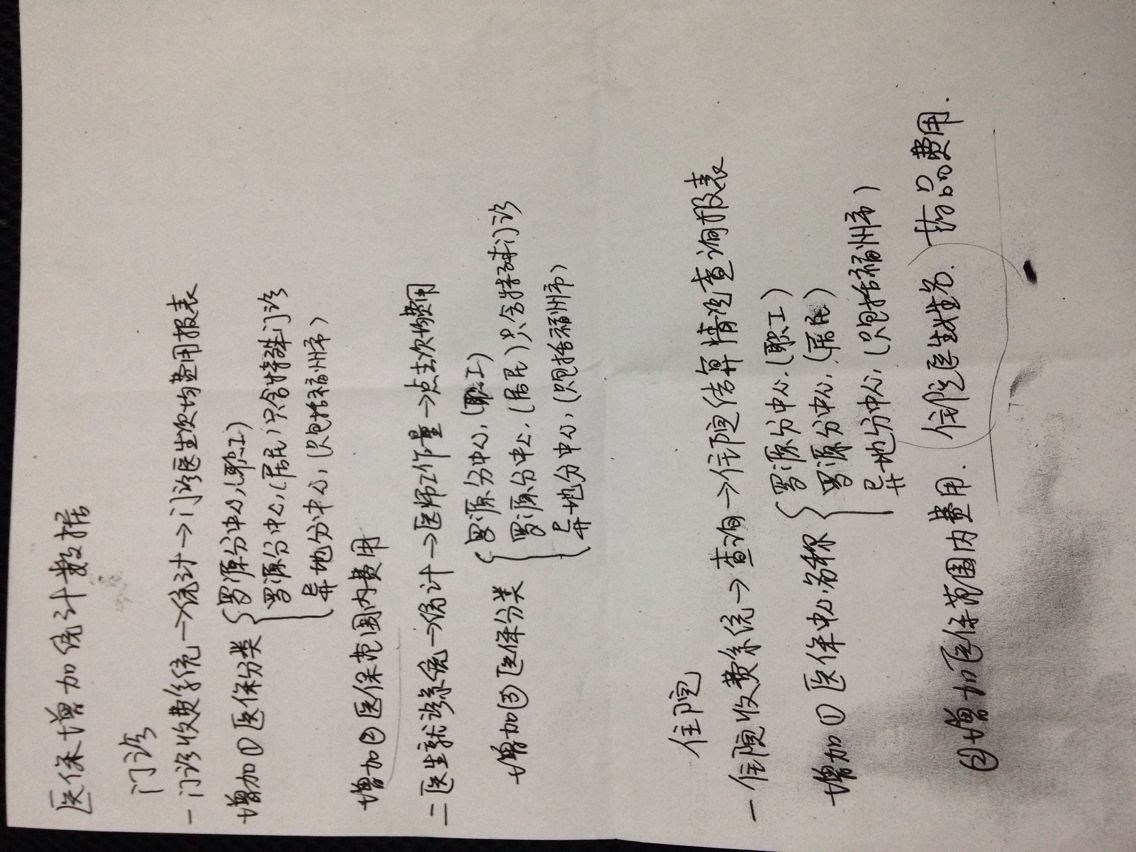 医保增加统计数据
门诊
一 门诊收费系统→统计→门诊医生次均费用报表
增加①医保分类 { 罗源分中心,(职工)
罗源分中心,(居民)只含特殊门诊
异地分中心,(只包括福州市)
增加②医保范围内费用
二 医生就诊系统→统计→医师工作量→点击次均费用
增加③医保分类 { 罗源分中心,(职工)
罗源分中心,(居民)只含特殊门诊
异地分中心,(只包括福州市)
住院
一 住院收费系统→查询→住院结算情况查询报表
增加①医保中心名称 { 罗源分中心.(职工)
罗源分中心,(居民)
异地分中心,(只包括福州市)
②增加医保范围内费用. 住院医生姓名. 药品费用.